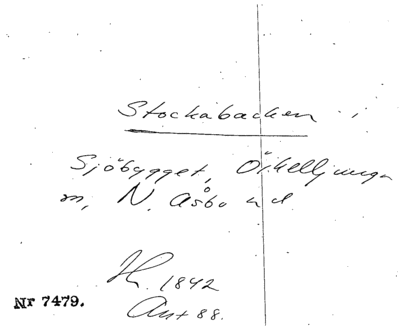 Stockabacken
Sjöbygget, Örkelljunga
m, N. Åsbo hd.
H. 1842
Ant 88.
Nr 7479.